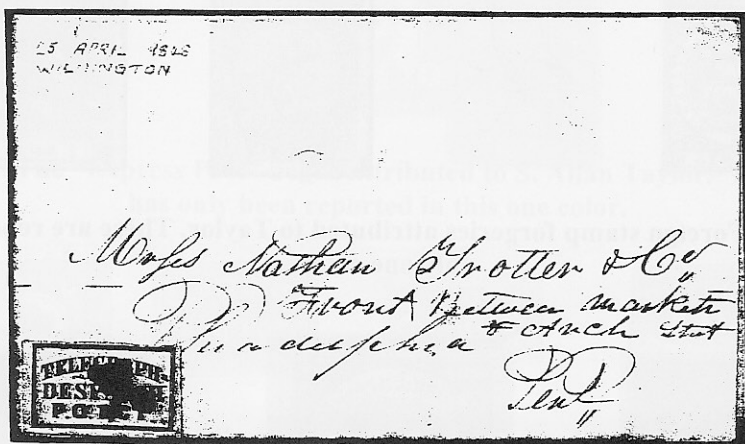 25 APRIL 1848
WILMINGTON
Mess Nathan Trotter & Co
Front Between Market
& Arch Street
Philadelphia
Pen
TELEGRAPH
DESPATCH
P.O.